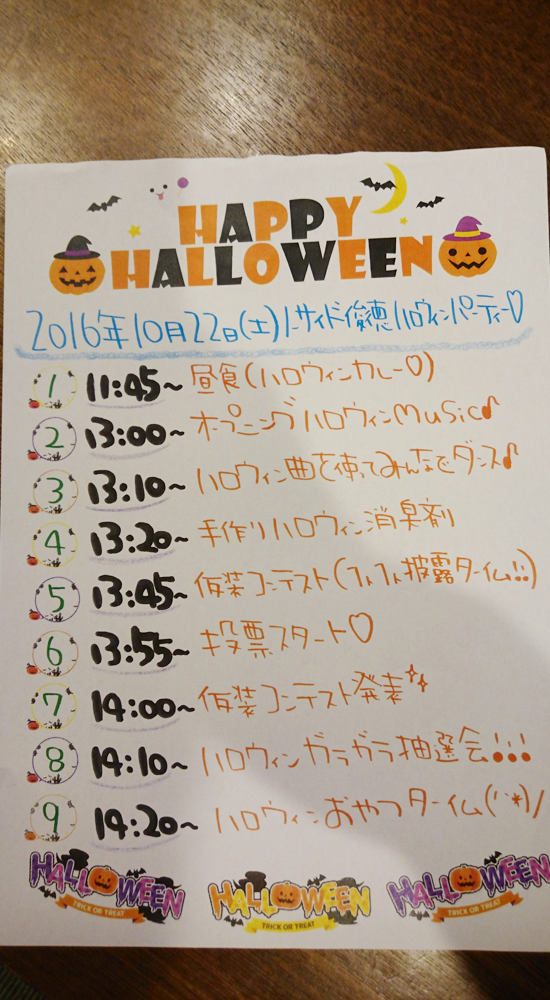 HAPPY
HALLOWEEN
2016年10月22日(土)ノーサイド俊徳ハロウィンパーティー♡
1 11:45~ 昼食(ハロウィンカレー♡)
2 13:00~ オープニングハロウィンmusic♪
3 13:10~ ハロウィン曲を使ってみんなでダンス♪
4 13:20~ 手作りハロウィン消臭剤
5 13:45~ 仮装コンテスト(1人1人披露タイム!!)
6 13:55~ 投票スタート♡
7 14:00~ 仮装コンテスト発表
8 14:10~ ハロウィンガラガラ抽選会!!!
9 14:20~ ハロウィンおやつタイム(^*)/
HALLOWEEN HALLOWEEN HALLOWEEN
TRICK OR TREAT TRICK OR TREAT TRICK OR TREAT